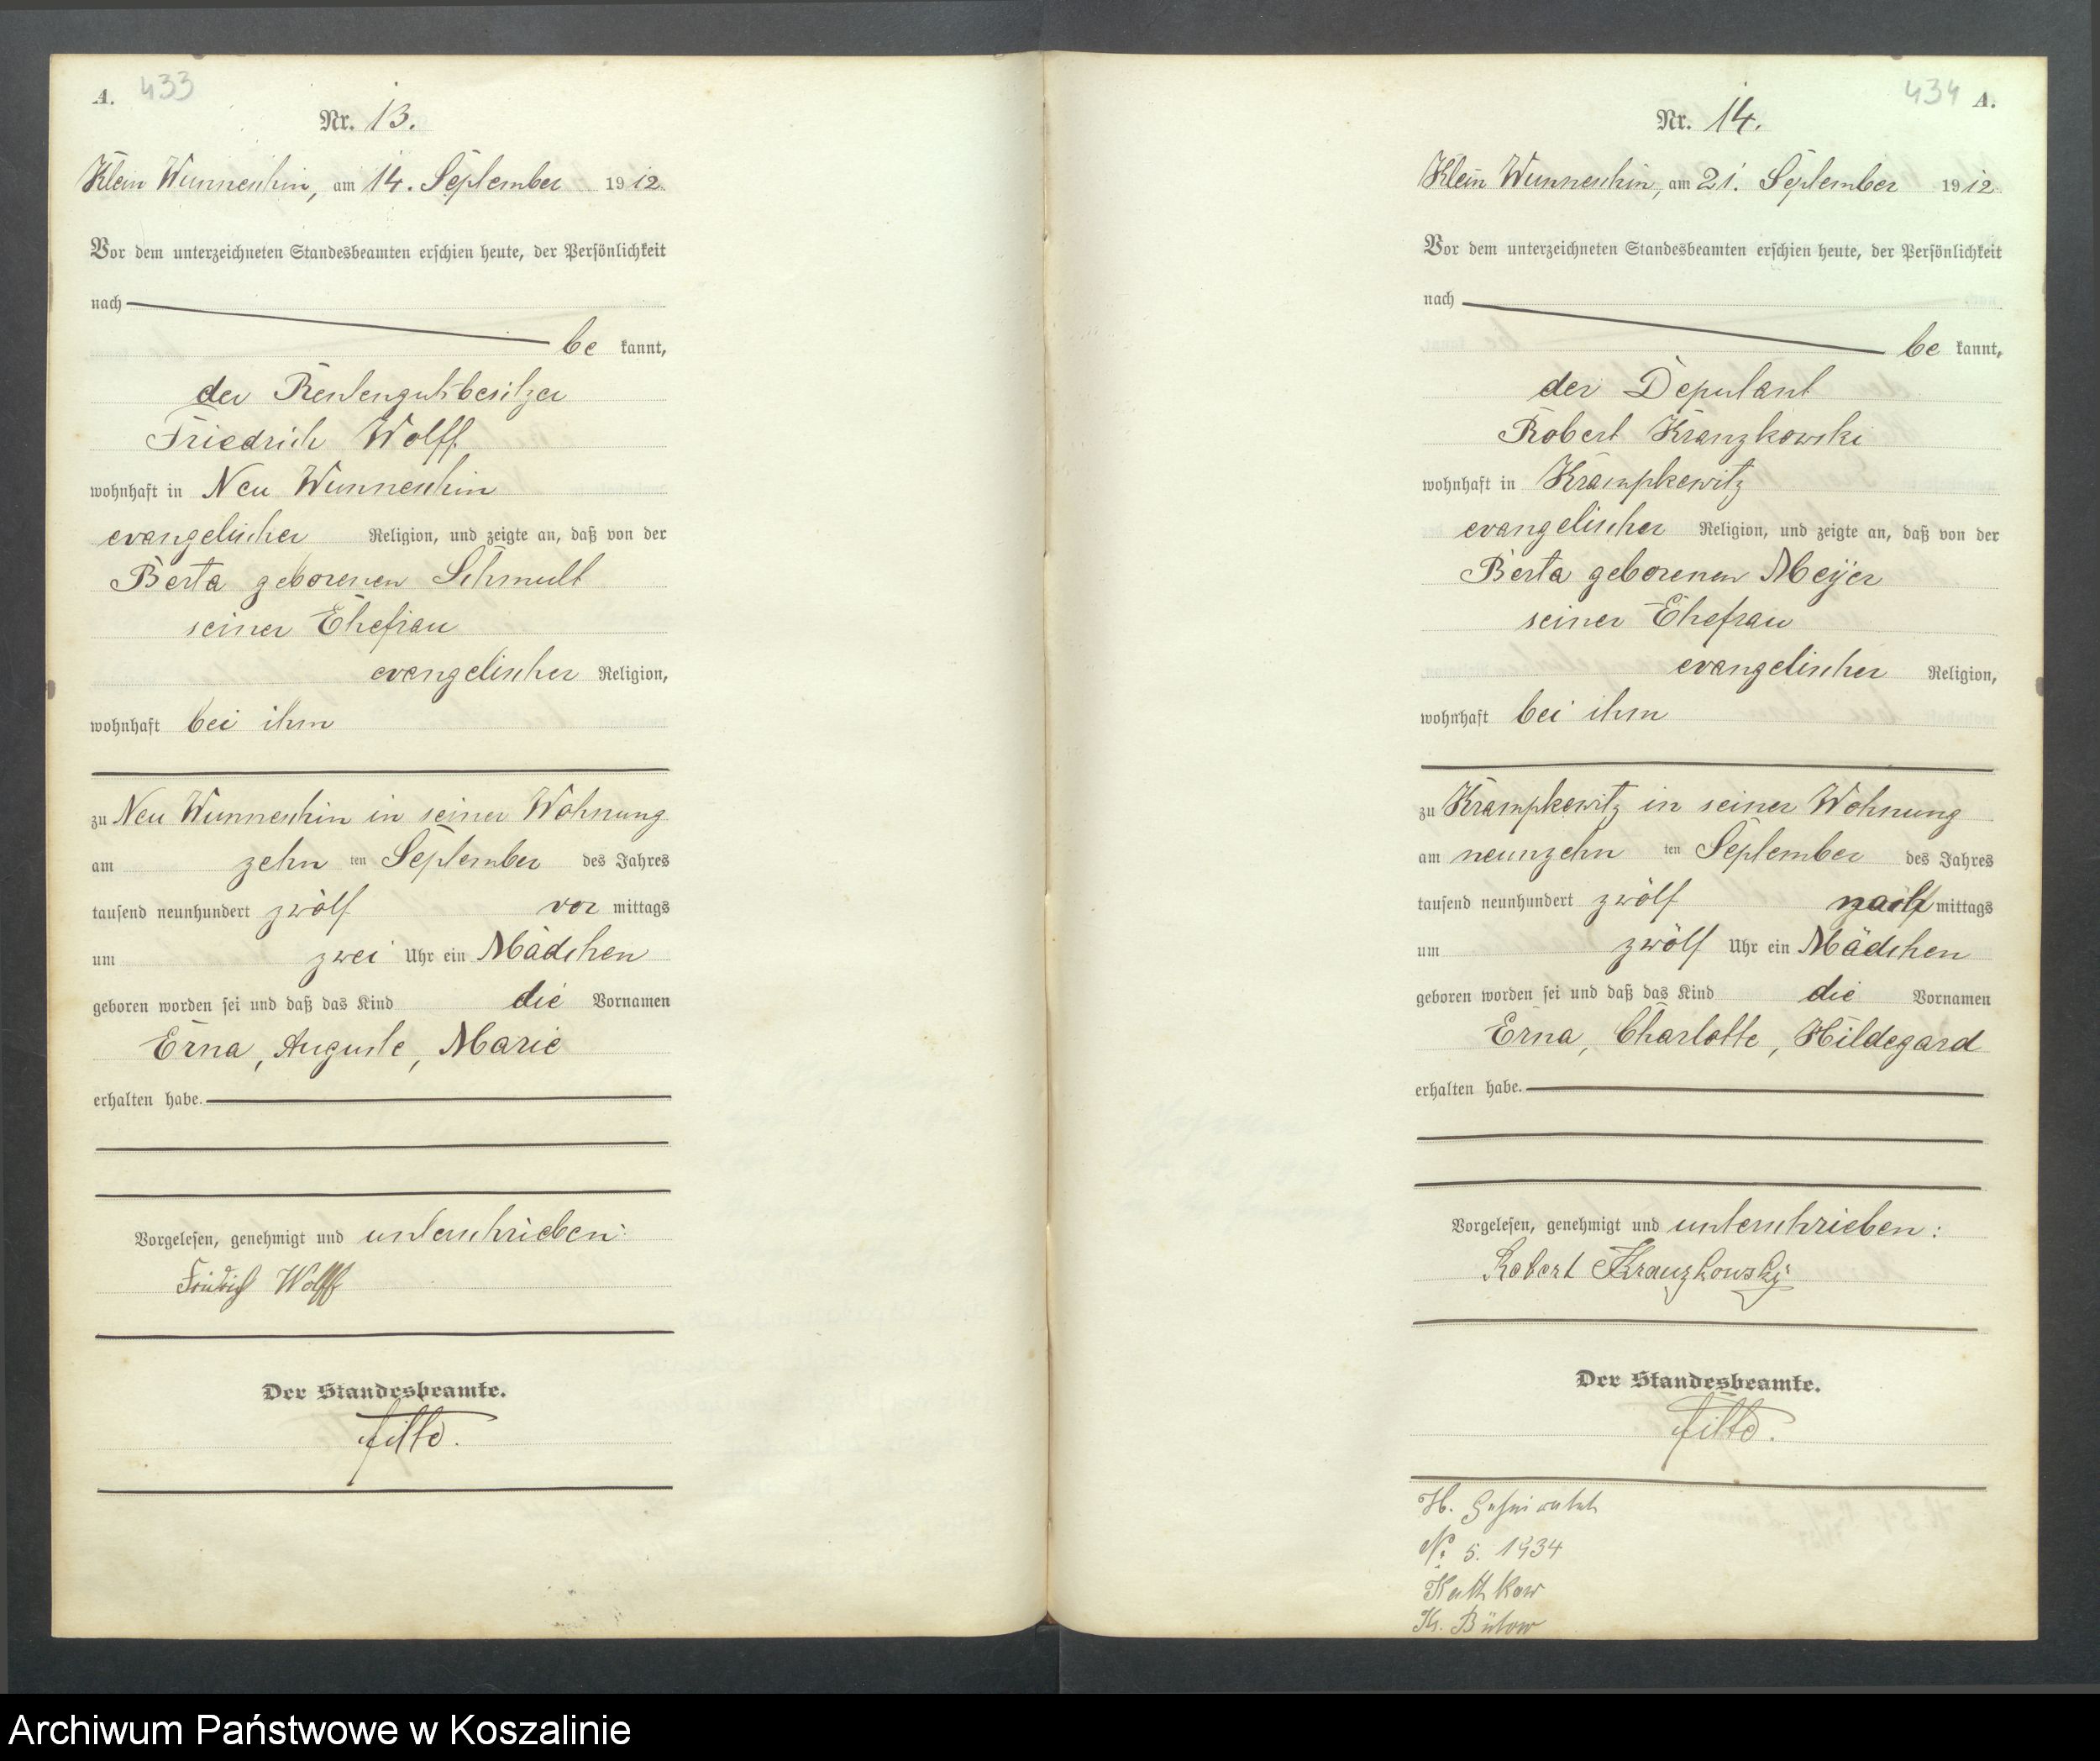 433
A.
Nr. 13.
Klein Wunneschin, am 14. September 1912.
Vor dem unterzeichneten Standesbeamten erschien heute, der Persönlichkeit
nach
be kannt,
der Rentengutsbesitzer
Friedrich Wolff
wohnhaft in Neu Wunneschin
evangelischer Religion, und zeigte an, daß von der
Berta geborenen
seiner Ehefrau
evangelischer Religion,
wohnhaft bei ihm
zu Neu Wunneschin in seiner Wohnung
am zehn ten September des Jahres
tausend neunhundert zwölf vor mittags
um zwei Uhr ein Mädchen
geboren worden sei und daß das Kind die Vornamen
Erna, Auguste, Marie
erhalten habe.
Vorgelesen, genehmigt und unterschrieben:
Friedrich Wolff
Der Standesbeamte.
434
A.
Nr. 14.
Klein Wunneschin, am 21. September 1912.
Vor dem unterzeichneten Standesbeamten erschien heute, der Persönlichkeit
nach
be kannt,
der Deputant
Robert Kranzkowski
wohnhaft in Krampkewitz
evangelischer Religion, und zeigte an, daß von der
Berta geborenen Meyer
seiner Ehefrau
evangelischer Religion,
wohnhaft bei ihm
zu Krampkewitz in seiner Wohnung
am neunzehn ten September des Jahres
tausend neunhundert zwölf nach mittags
um zwölf Uhr ein Mädchen
geboren worden sei und daß das Kind die Vornamen
Erna, Charlotte, Hildegard
erhalten habe.
Vorgelesen, genehmigt und unterschrieben:
Robert Kranzkowsky
Der Standesbeamte.
H. Geheiratet
No 5. 1934
Kr. Bütow
Archiwum Państwowe w Koszalinie